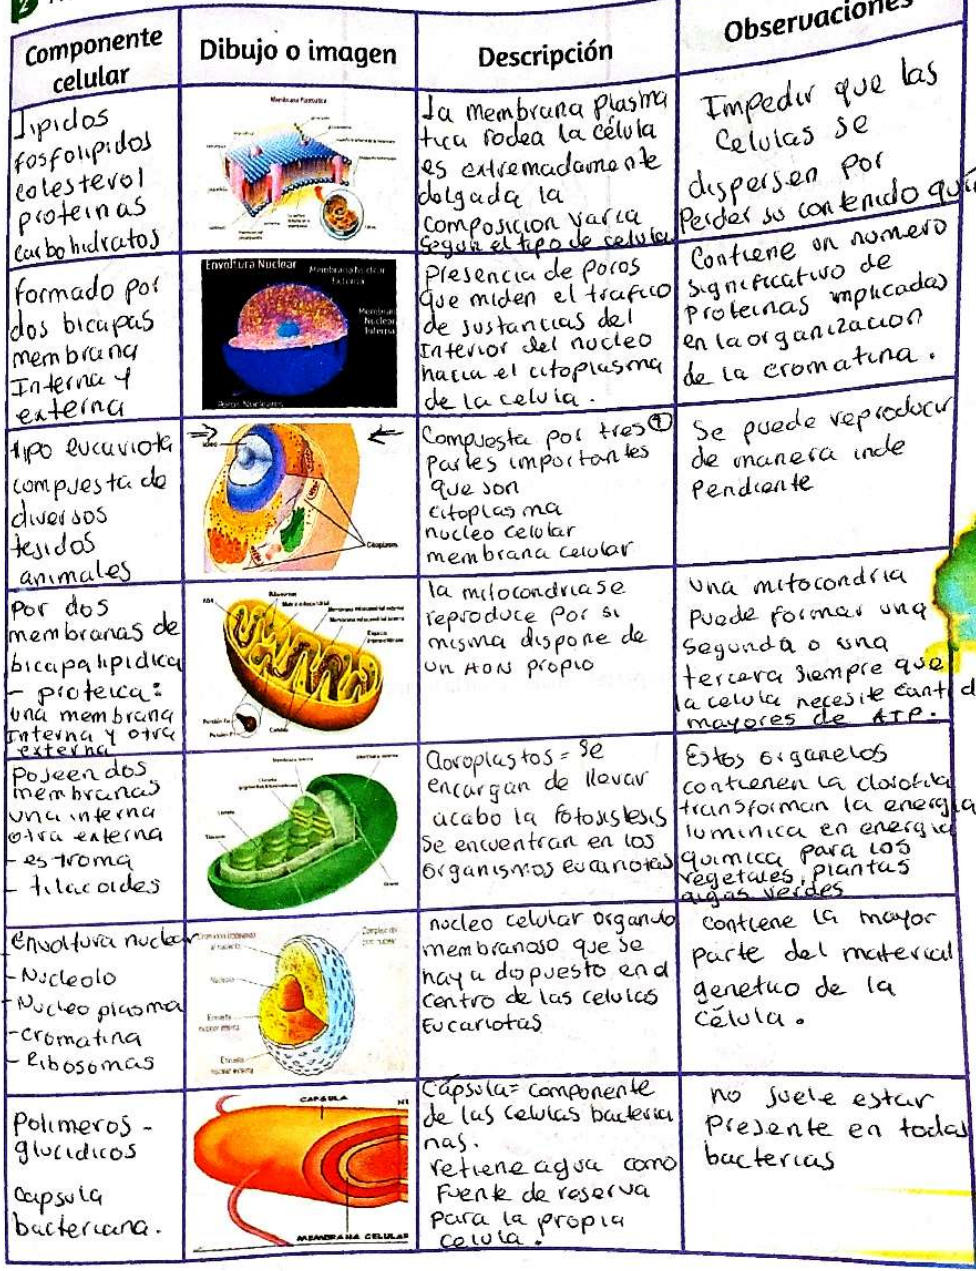 2
Componente
celular
Dibujo o imagen
Descripción
Observaciones
Lipidos
fosfolipidos
colesterol
proteinas
Carbohidratos
Membrana Plasmática
la membrana plasma
tica rodea la célula
es extremadamente
dolgada la
composicion varia
segun el tipo de celula
Impedir que las
Celulas se
dispersen por
Perder su contenido quí
formado por
dos bicapas
membrana
Interna y
externa
Envoltura Nuclear
Membrana Nuclear
Externa
Membrana
Nuclear
Interna
Poros Nucleares
presencia de poros
que miden el trafico
de sustancias del
Interior del nucleo
hacia el citoplasma
de la celula.
Contiene un numero
significativo de
Proteinas implicadas
en la organizacion
de la cromatina.
tipo eucariota
compuesta de
diversos
tejidos
animales
Citoplasma
Compuesta por tres
partes importantes
que son
citoplasma
nucleo celular
membrana celular
Se puede reproducir
de manera inde
pendiente
Por dos
membranas de
bicapa lipidica
- proteica:
una membrana
Interna y otra
externa
ADN
Ribosomas
la mitocondria se
reproduce por si
misma dispone de
un ADN propio
una mitocondria
puede formar una
segunda o una
tercera siempre que
la celula necesite cantid
mayores de ATP.
Poseen dos
membranas
una interna
otra externa
- estroma
- tilacoides
Cloroplastos = se
encargan de llevar
acabo la fotosistesis
se encuentran en los
organismos eucariotas
Estos organelos
contienen la clorofila
transforman la energia
luminica en energia
quimica para los
vegetales, plantas
algas verdes
Envoltura nuclear
- Nucleolo
- Nucleo plasma
- cromatina
- Ribosomas
Nucleolo
Envuelta
nuclear interna
Envuelta
nuclear externa
nucleo celular organulo
membranoso que se
haya dispuesto en el
centro de las celulas
Eucariotas
contiene la mayor
parte del material
genetico de la
célula.
Polimeros -
glucidicos
capsula
bacteriana.
CAPSULA
MEMBRANA CELULAR
Cápsula = componente
de las celulas bacteria
nas.
retiene agua como
fuente de reserva
para la propia
celula.
no suele estar
presente en todas
bacterias